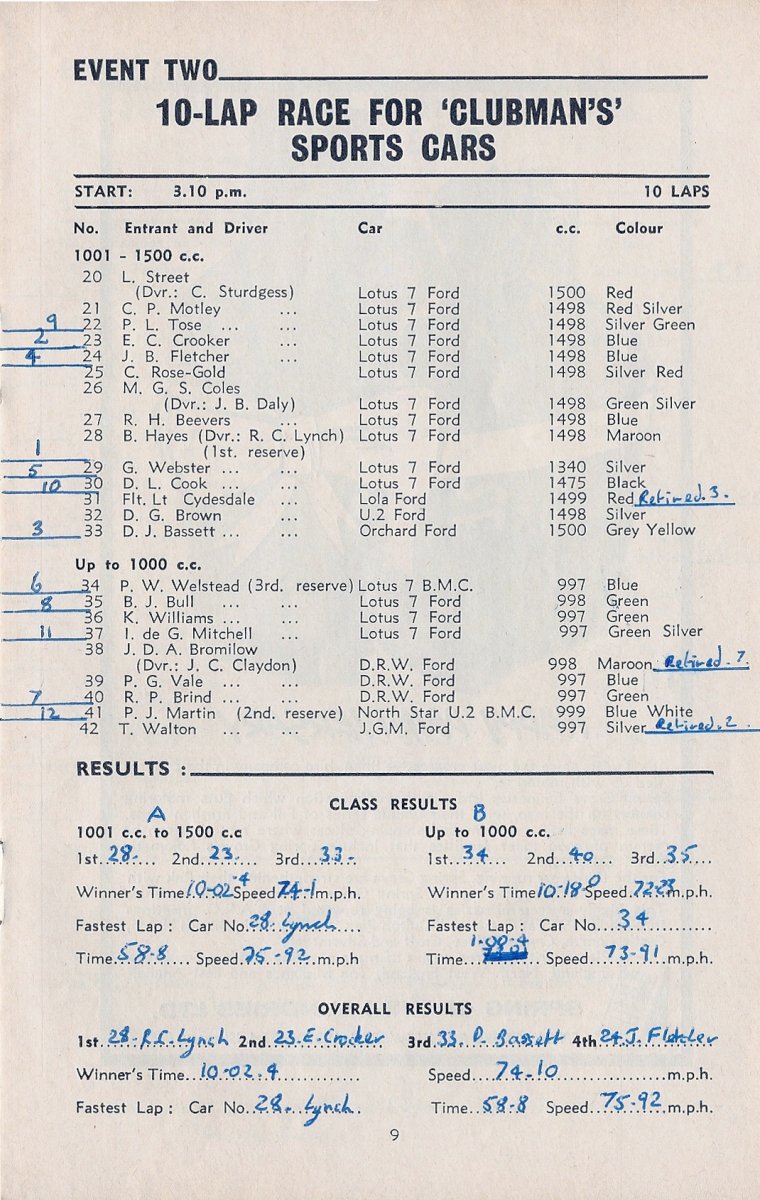 EVENT TWO
10-LAP RACE FOR ‘CLUBMAN’S’
SPORTS CARS
START: 3.10 p.m. 10 LAPS
No. Entrant and Driver Car c.c. Colour
1001 - 1500 c.c.
20 L. Street
(Dvr.: C. Sturdgess) Lotus 7 Ford 1500 Red
21 C. P. Motley ... Lotus 7 Ford 1498 Red Silver
9 22 P. L. Tose ... ... Lotus 7 Ford 1498 Silver Green
2 23 E. C. Crooker ... Lotus 7 Ford 1498 Blue
4 24 J. B. Fletcher ... Lotus 7 Ford 1498 Blue
25 C. Rose-Gold Lotus 7 Ford 1498 Silver Red
26 M. G. S. Coles
(Dvr.: J. B. Daly) Lotus 7 Ford 1498 Green Silver
27 R. H. Beevers ... Lotus 7 Ford 1498 Blue
28 B. Hayes (Dvr.: R. C. Lynch) Lotus 7 Ford 1498 Maroon
1 (1st. reserve)
5 29 G. Webster ... ... Lotus 7 Ford 1340 Silver
10 30 D. L. Cook ... ... Lotus 7 Ford 1475 Black
31 Flt. Lt Cydesdale ... Lola Ford 1499 Red Retired. 3.
32 D. G. Brown ... U.2 Ford 1498 Silver
3 33 D. J. Bassett ... ... Orchard Ford 1500 Grey Yellow
Up to 1000 c.c.
6 34 P. W. Welstead (3rd. reserve) Lotus 7 B.M.C. 997 Blue
8 35 B. J. Bull ... ... Lotus 7 Ford 998 Green
36 K. Williams ... ... Lotus 7 Ford 997 Green
11 37 I. de G. Mitchell ... Lotus 7 Ford 997 Green Silver
38 J. D. A. Bromilow
(Dvr.: J. C. Claydon) D.R.W. Ford 998 Maroon Retired. 7.
39 P. G. Vale ... ... D.R.W. Ford 997 Blue
7 40 R. P. Brind ... ... D.R.W. Ford 997 Green
12 41 P. J. Martin (2nd. reserve) North Star U.2 B.M.C. 999 Blue White
42 T. Walton ... ... J.G.M. Ford 997 Silver Retired. 2.
RESULTS :
CLASS RESULTS
A B
1001 c.c. to 1500 c.c Up to 1000 c.c.
1st. 28. 2nd. 23. 3rd. 33. 1st. 34 2nd. 40 3rd. 35
Winner's Time 10-02.4 Speed 74-1 m.p.h. Winner's Time 10.18.0 Speed 72-23 m.p.h.
Fastest Lap : Car No. 28. Lynch Fastest Lap : Car No. 34
Time 58-8 Speed 75-92 m.p.h Time 1-00.4 Speed 73-91 m.p.h.
OVERALL RESULTS
1st. 28. R.C. Lynch 2nd. 23. E. Crooker 3rd. 33. D. Bassett 4th 24. J. Fletcher
Winner's Time 10-02.4 Speed 74-10 m.p.h.
Fastest Lap : Car No. 28. Lynch. Time 58-8 Speed 75-92 m.p.h.
9